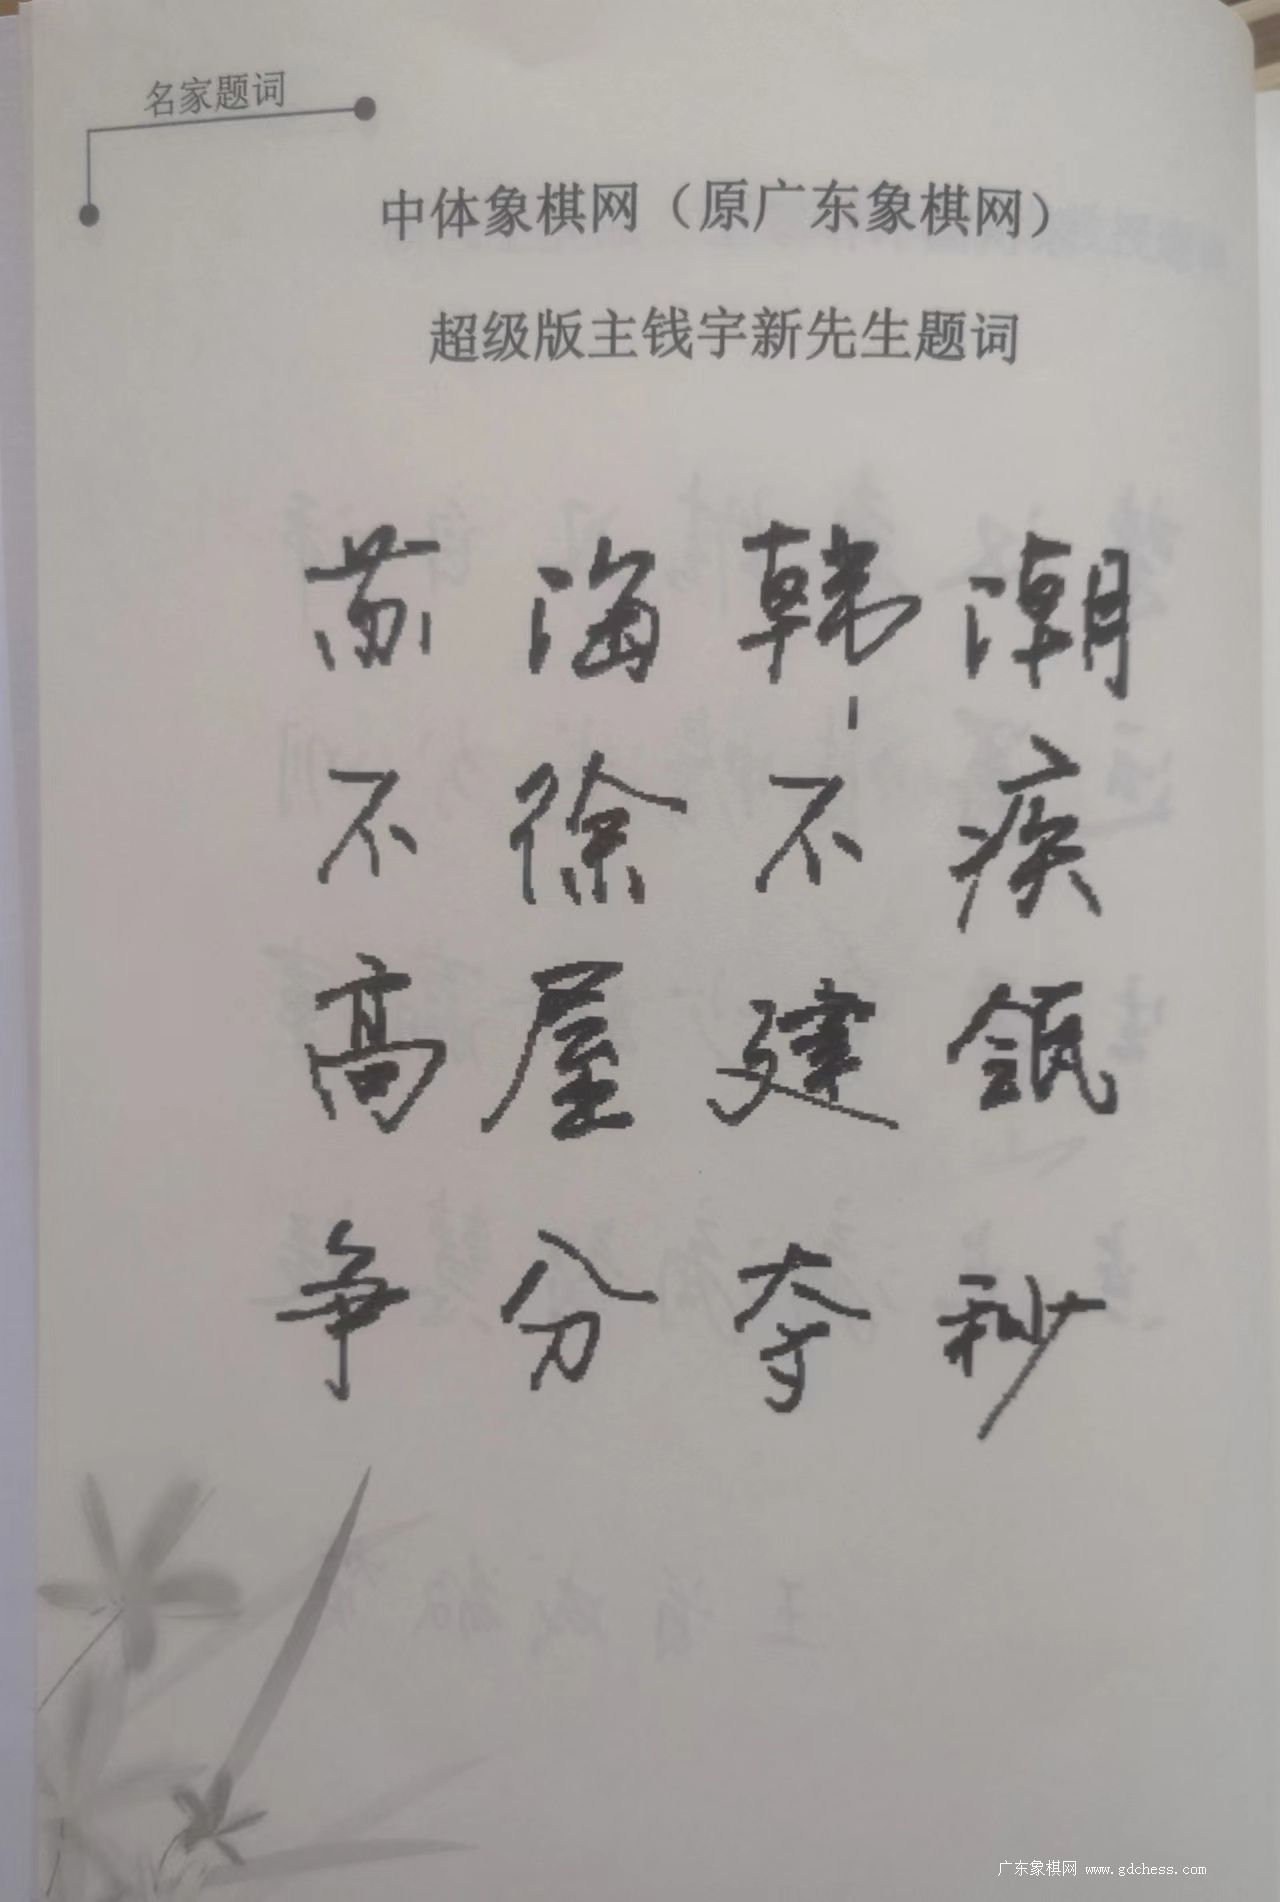 名家题词
中体象棋网（原广东象棋网）
超级版主钱宇新先生题词
苏海韩潮
不徐不疾
高屋建瓴
争分夺秒
广东象棋网 www.gdchess.com